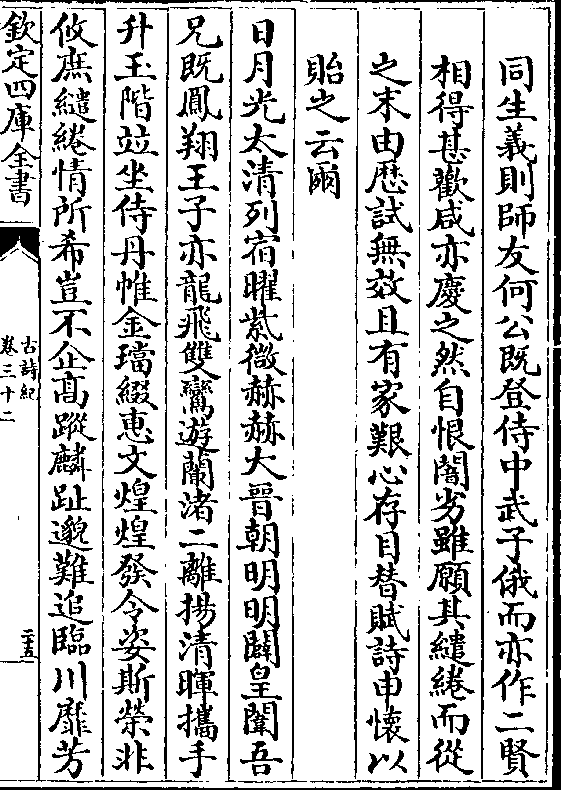 同生義則師友何公既登侍中武子俄而亦作二賢
相得甚歡咸亦慶之然自恨闇劣雖願其繾綣而從
之末由歴試無效且有家艱心存目替賦詩申懷以
貽之云爾
日月光太清列宿曜紫微赫赫大晉朝明明闢皇闈吾
兄既鳳翔王子亦龍飛雙鸞遊蘭渚二離揚清暉攜手
升玉階竝坐侍丹帷金璫綴惠文煌煌發令姿斯榮非
攸庶繾綣情所希豈不企髙蹤麟趾邈難追臨川靡芳
欽定四庫全書
古詩紀
卷三十二
二十五